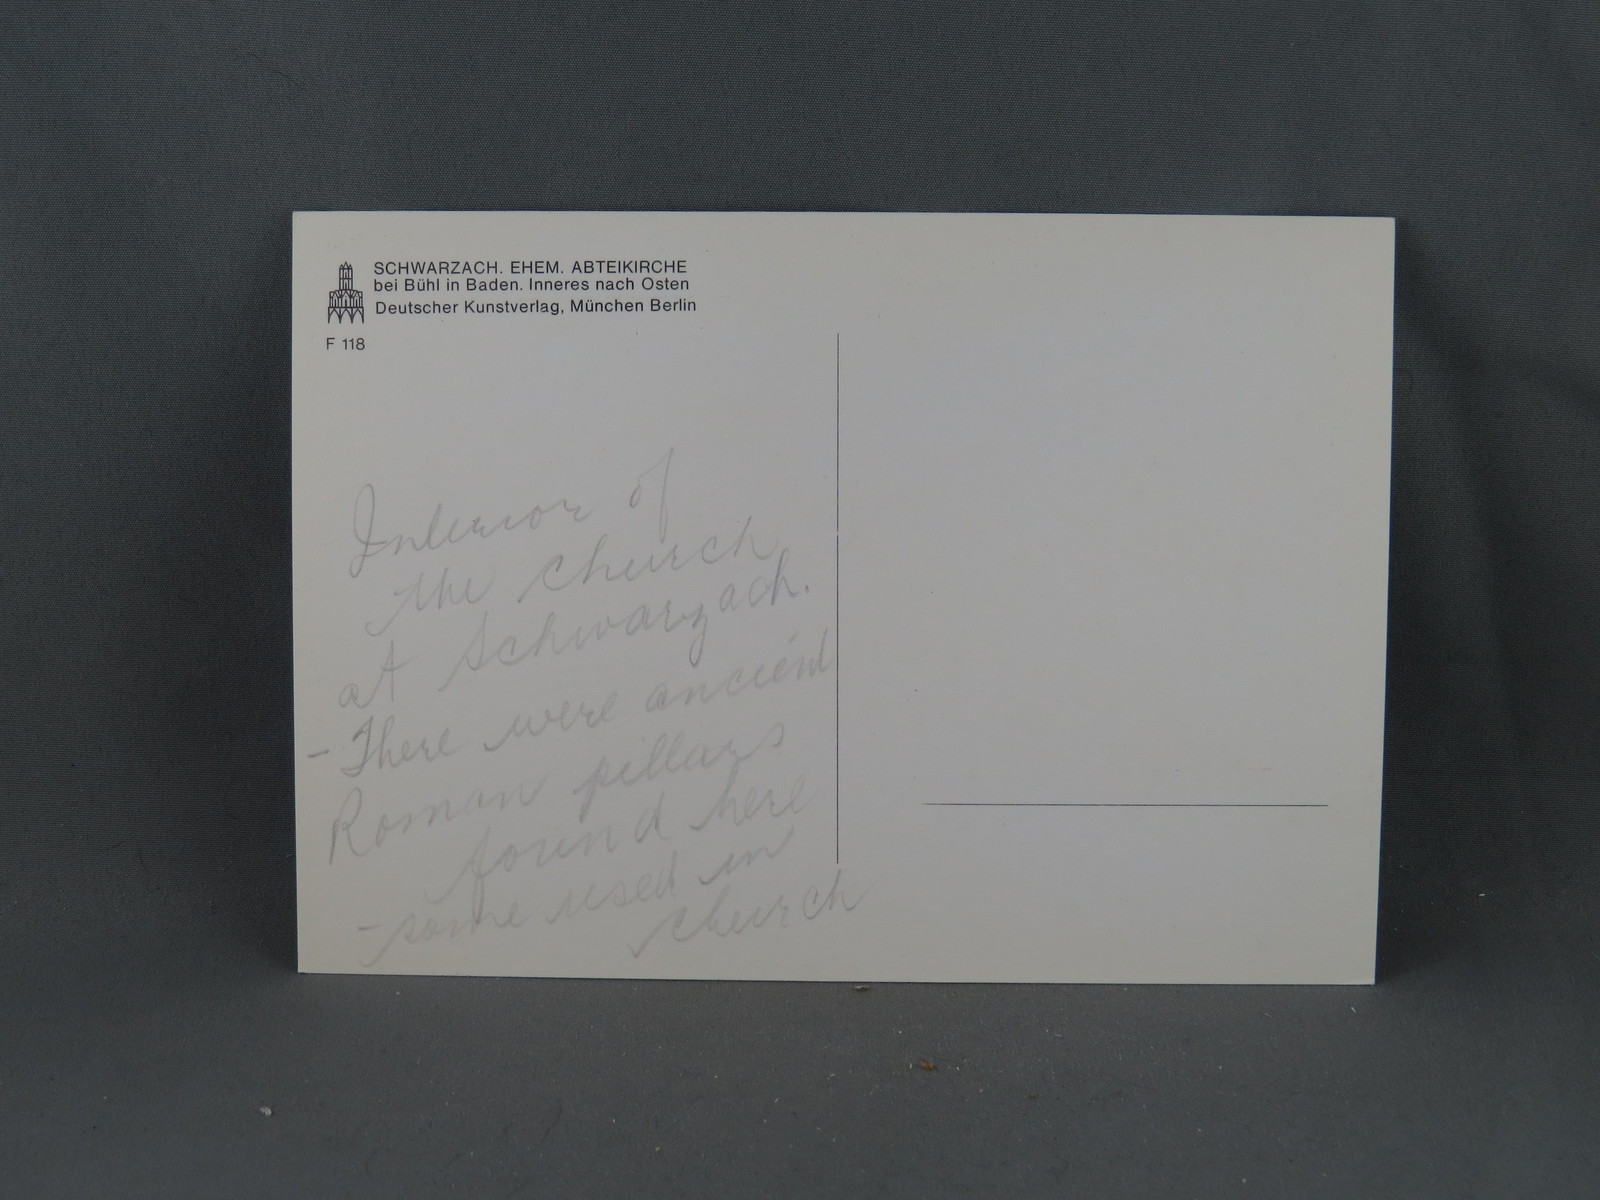 SCHWARZACH. EHEM. ABTEIKIRCHE
bei Bühl in Baden. Inneres nach Osten
Deutscher Kunstverlag, München Berlin
F 118
Interior of
the church
at Schwarzach.
- There were ancient
Roman pillars
found here
- some used in
church